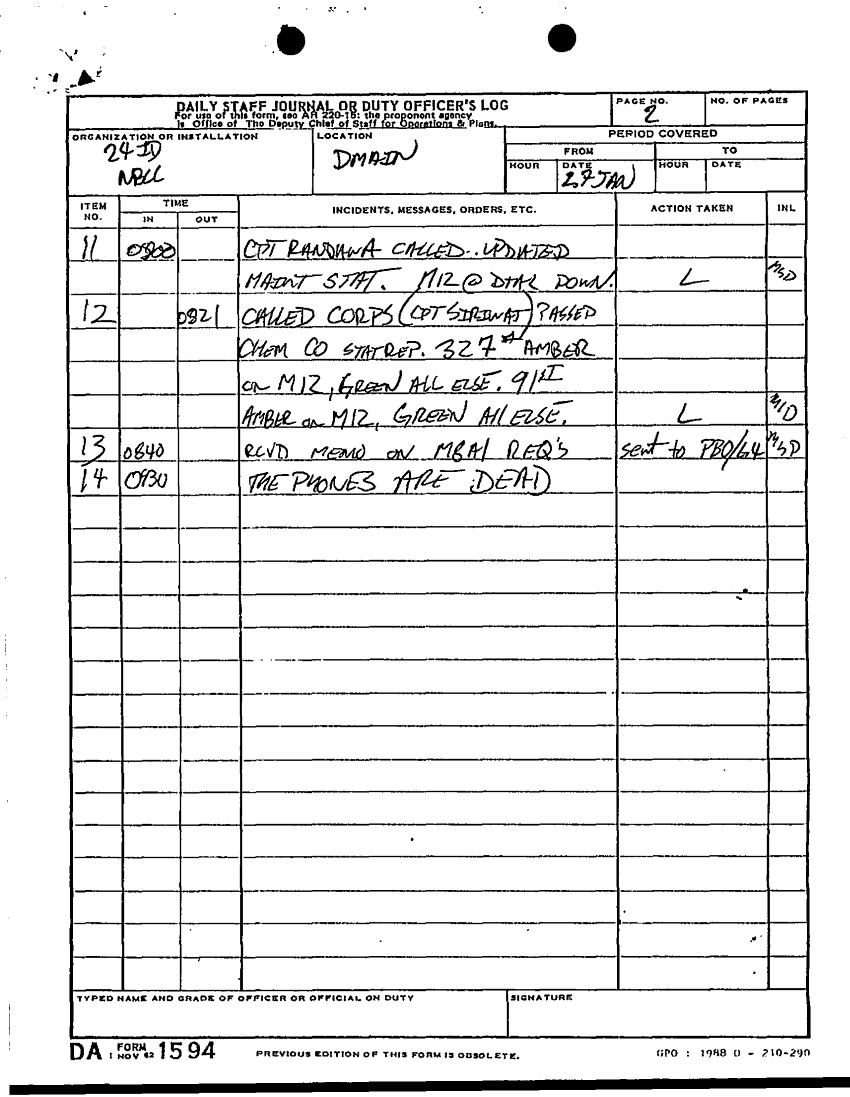 DAILY STAFF JOURNAL OR DUTY OFFICER'S LOG
For use of this form, see AR 220-15; the proponent agency
is Office of The Deputy Chief of Staff for Operations & Plans.
PAGE NO.
2
NO. OF PAGES
ORGANIZATION OR INSTALLATION
24 ID
LOCATION
DMAIN
PERIOD COVERED
FROM
TO
HOUR
DATE
27 JAN
HOUR
DATE
ITEM NO.
TIME
IN
OUT
INCIDENTS, MESSAGES, ORDERS, ETC.
ACTION TAKEN
INL
11 0800 CPT RANDAWA CALLED.. UPDATED
MAINT STAT. M12 @ DTAC DOWN. L MSD
12 0821 CALLED CORPS (CPT SIRIWAT) PASSED
CHEM CO STATREP. 327th AMBER
on M12, GREEN ALL ELSE. 91st
AMBER on M12, GREEN All ELSE. L
13 0840 RCVD MEMO ON M8A1 REQ'S sent to PBO/G4 MSD
14 0930 THE PHONES ARE DEAD
TYPED NAME AND GRADE OF OFFICER OR OFFICIAL ON DUTY
SIGNATURE
DA FORM 1 NOV 62 1594
PREVIOUS EDITION OF THIS FORM IS OBSOLETE.
GPO : 1988 O - 210-290